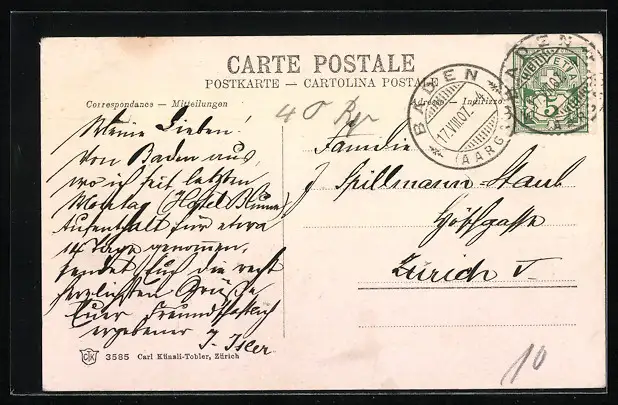 CARTE POSTALE
POSTKARTE — CARTOLINA POSTALE
Correspondance — Mitteilungen
Adresse — Indirizzo
40 Rp
BADEN
17.VIII.07.
(AARGAU)
HELVETIA
5
Meine Lieben!
Von Baden aus,
wo ich seit letzten
Montag (Hotel Blume)
Aufenthalt für etwa
14 Tage genommen,
sendet Euch die recht
herzlichsten Grüße
Euer Freundschaftlich
ergebener J. Isler
Familie
J Spillmann-Staub
Gasse
Zürich I.
3585 Carl Künzli-Tobler, Zürich
10